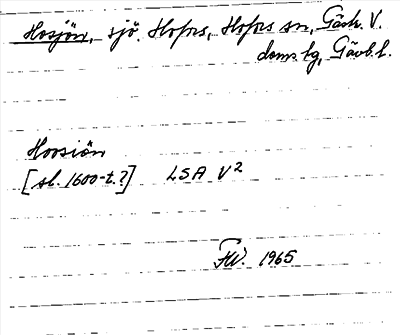 Hosjön, sjö. Hofors, Hofors sn, Gästr. V.
doms.lg, Gävb. l.
Hoosiön
[sl. 1600-t.?] LSA V2
FW. 1965